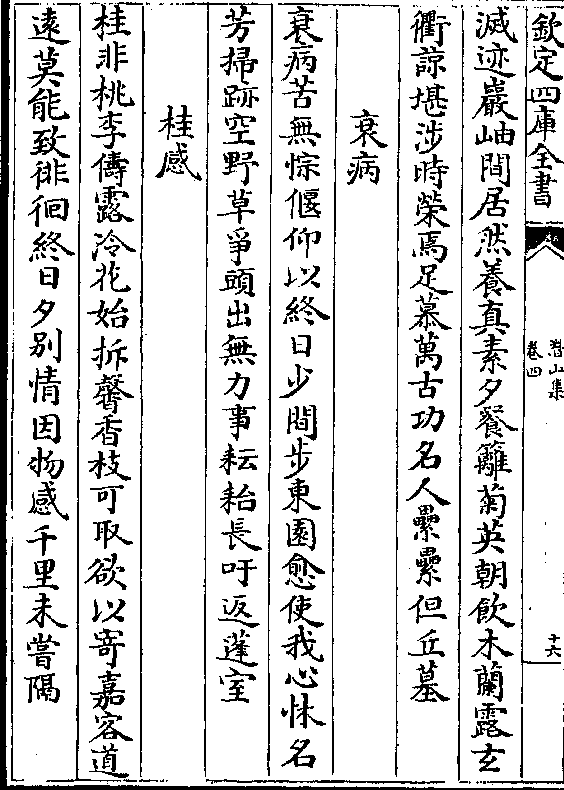 欽定四庫全書
潛山集
卷四
十六
滅迹巖岫間居然養真素夕餐籬菊英朝飲木蘭露玄
衢諒堪涉時榮焉足慕萬古功名人纍纍但丘墓
衰病
衰病苦無悰偃仰以終日少間步東園愈使我心怵名
芳掃跡空野草爭頭出無力事耘耔長吁返蓬室
桂感
桂非桃李儔露冷花始拆馨香枝可取欲以寄嘉客道
遠莫能致徘徊終日夕別情因物感千里未嘗隔